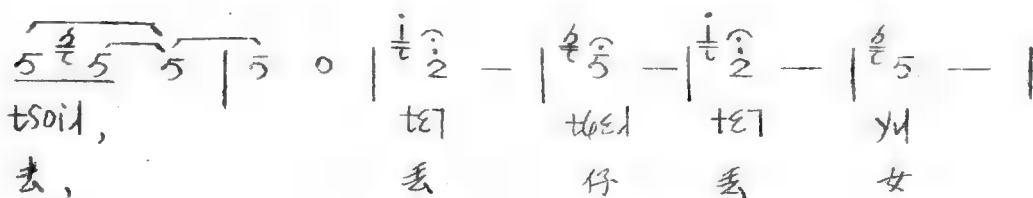 5 5 5 | 5 0 | i 2̇ — | 5̇ — | i 2̇ — | 5 — |
tsoi˩, tɛ˥ tɕɛ˩ tɛ˥ y˩
去, 丢 仔 丢 女